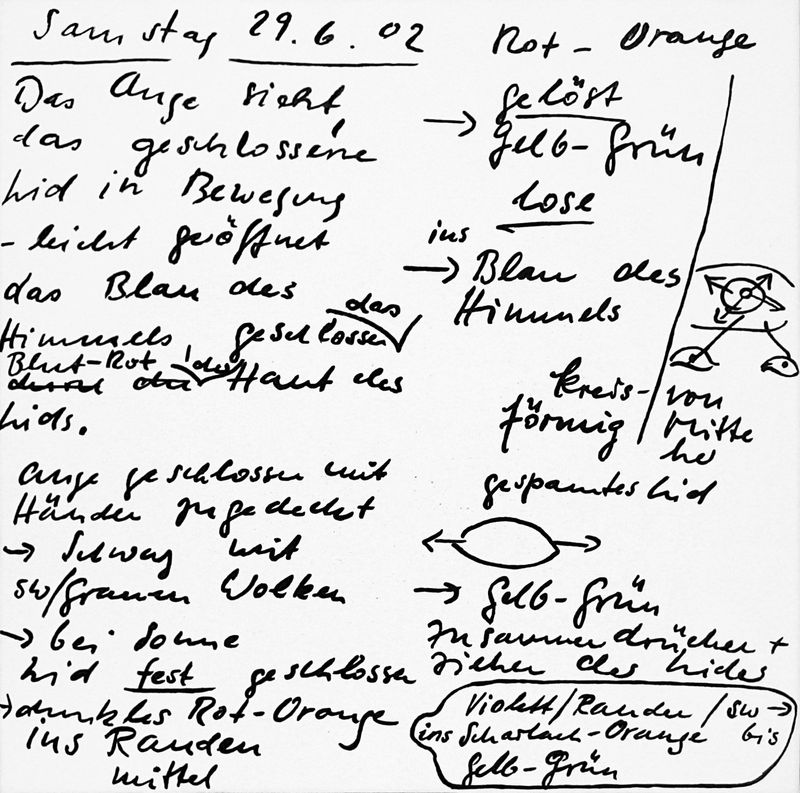 Samstag 29.6.02
Das Auge sieht
das geschlossene
Lid in Bewegung
- leicht geöffnet
das Blau des
Himmels geschlossen das
Blut-Rot der Haut des
Lids.
Auge geschlossen mit
Händen zugedeckt
→ Schwarz mit
sw/grauen Wolken
→ bei Sonne
Lid fest geschlossen
→ dunkles Rot-Orange
ins Randen
mittel
Rot - Orange
gelöst
→ Gelb-Grün
lose
ins
→ Blau des
Himmels
kreis-
förmig
von
Mitte
her
gespanntes Lid
→ Gelb-Grün
Zusammendrücken +
Ziehen des Lides
Violett/Randen/sw →
ins Scharlach-Orange bis
Gelb-Grün